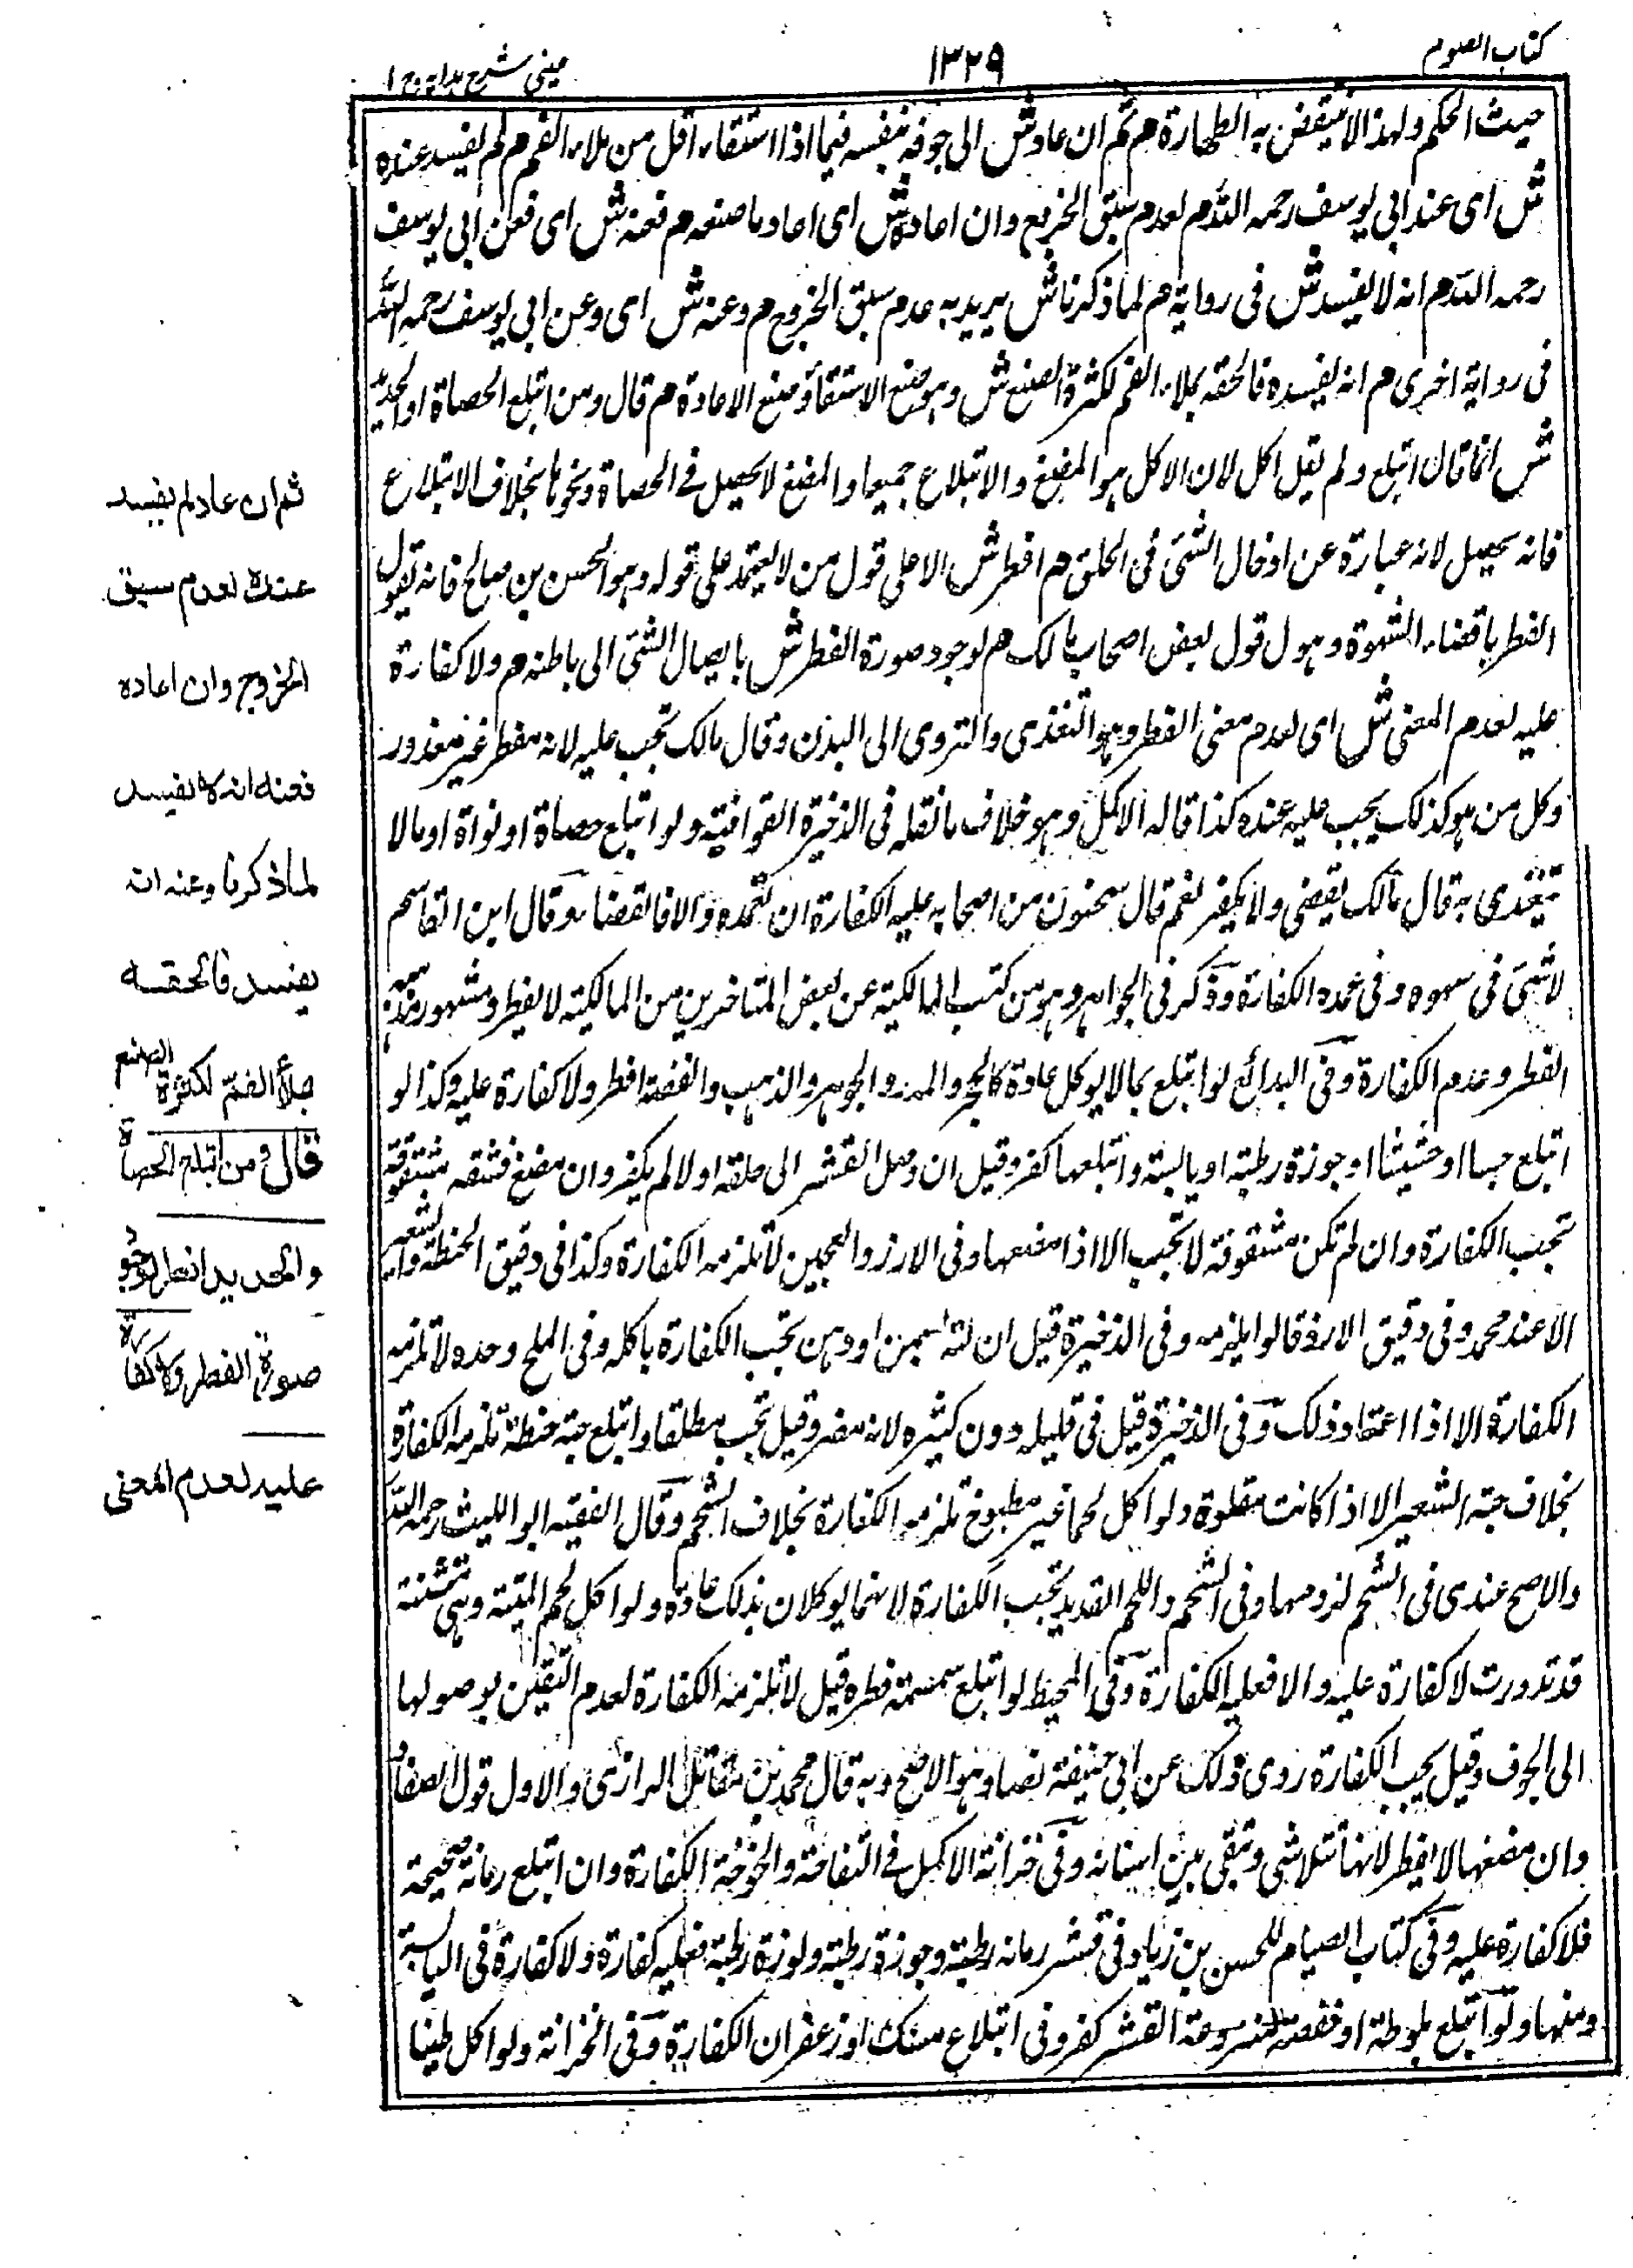 كتاب الصوم
١٣٢٩
عينى شرح هدايه ج ١
حيث الحكم ولهذا لا ينتقض به الطهارة م ثم ان عاد ش الى جوفه بنفسه فيما اذا استقاء اقل من ملاء الفم م لم يفسد عنده
ش اى عند ابى يوسف رحمه الله م لعدم سبق الخروج وان اعاده ش اى اعاد ما صنعه م فعنه ش اى فعن ابى يوسف
رحمه الله م انه لا يفسد ش فى رواية م لما ذكرنا ش يريد به عدم سبق الخروج م وعنه ش اى وعن ابى يوسف رحمه الله
فى رواية اخرى م انه يفسده فالحقه بملاء الفم لكثرة الصنع ش وهو صنع الاستقاء وصنع الاعادة م قال ومن ابتلع الحصاة او الحديد
ش انما قال ابتلع ولم يقل اكل لان الاكل هو المضغ والابتلاع جميعا والمضغ لا يحصل فى الحصاة ونحوها بخلاف الابتلاع
فانه يحصل لانه عبارة عن ادخال الشئ فى الحلق م افطر ش الا على قول من لا يعتمد على قوله وهو الحسن بن صالح فانه يقول
الفطر باقضاء الشهوة وهو ل قول بعض اصحاب مالك م لوجود صورة الفطر ش بايصال الشئ الى باطنه م ولا كفارة
عليه لعدم المعنى ش اى لعدم معنى الفطر وهو التغذى والتروى الى البدن وقال مالك تجب عليه لانه مفطر غير معذور
وكل من هو كذلك يجب عليه عنده كذا قاله الاكمل وهو خلاف ما نقله فى الذخيرة القوافية ولو ابتلع حصاة او نواة او ما لا
يتغذى به قال مالك يقضى ولا يكفر نعم قال سحنون من اصحابه عليه الكفارة ان تعمده والا فالقضاء وقال ابن القاسم
لا شئ فى سهوه وفى عمده الكفارة وذكر فى الجواهر وهو من كتب المالكية عن بعض المتاخرين من المالكية لا يفطر ومشهور مذهبه
الفطر وعدم الكفارة وفى البدائع لو ابتلع ما لا يوكل عادة كالحجر والمدر والجوهر والذهب والفضة افطر ولا كفارة عليه وكذا لو
ابتلع حبا او حشيشا او جوزة رطبة او يابسة وابتلعها كفر وقيل ان وصل القشر الى حلقه اولا لم يكفر وان مضغ فستقه مشقوقة
تجب الكفارة وان لم تكن مشقوقة لا تجب الا اذا مضغها وفى الارز والعجين لا تلزمه الكفارة وكذا فى دقيق الحنطة والشعير
الا عند محمد وفى دقيق الارز قالوا يلزمه وفى الذخيرة قيل ان لته بسمن او دهن تجب الكفارة باكله وفى الملح وحده لا تلزمه
الكفارة الا اذا اعتاد ذلك وفى الذخيرة قيل فى قليله دون كثيره لانه مضر وقيل تجب مطلقا وابتلع حبة حنطة تلزمه الكفارة
بخلاف حبة الشعير الا اذا كانت مقلوة ولو اكل لحما غير مطبوخ تلزمه الكفارة بخلاف الشحم وقال الفقيه ابو الليث رحمه الله
والاصح عندى فى الشحم لزومها وفى الشحم واللحم القديد تجب الكفارة لانهما يوكلان بذلك عادة ولو اكل لحم الميتة وهى منتنة
قد تدورت لا كفارة عليه والا فعليه الكفارة وفى المحيط لو ابتلع سمسمة فطره قيل لا تلزمه الكفارة لعدم التيقن بوصولها
الى الجوف وقيل يجب الكفارة روى ذلك عن ابى حنيفة نصا وهو الاصح وبه قال محمد بن مقاتل الرازى والاول قول الصفار
وان مضغها لا يفطر لانها تتلاشى وتبقى بين اسنانه وفى خزانة الاكمل فى التفاحة والخوخة الكفارة وان ابتلع رمانة صحيحة
فلا كفارة عليه وفى كتاب الصيام للحسن بن زياد وفى قشر رمانه رطبة وجوزة رطبة ولوزة رطبة فعليه كفارة ولا كفارة فى اليابسة
ومنها ولو ابتلع بلوطة او القشر كفر وفى ابتلاع مسك او زعفران الكفارة وفى الخزانة ولو اكل طينا
ثم ان عاد لم يفسد
عنده لعدم سبق
الخروج وان اعاده
فعنه انه لا يفسد
لما ذكرنا وعنه انه
يفسد فالحقه
بملأ الفم لكثرة الصنع
قال ومن ابتلع الحصاة
والحديد افطر لوجود
صورة الفطر ولا كفارة
عليه لعدم المعنى